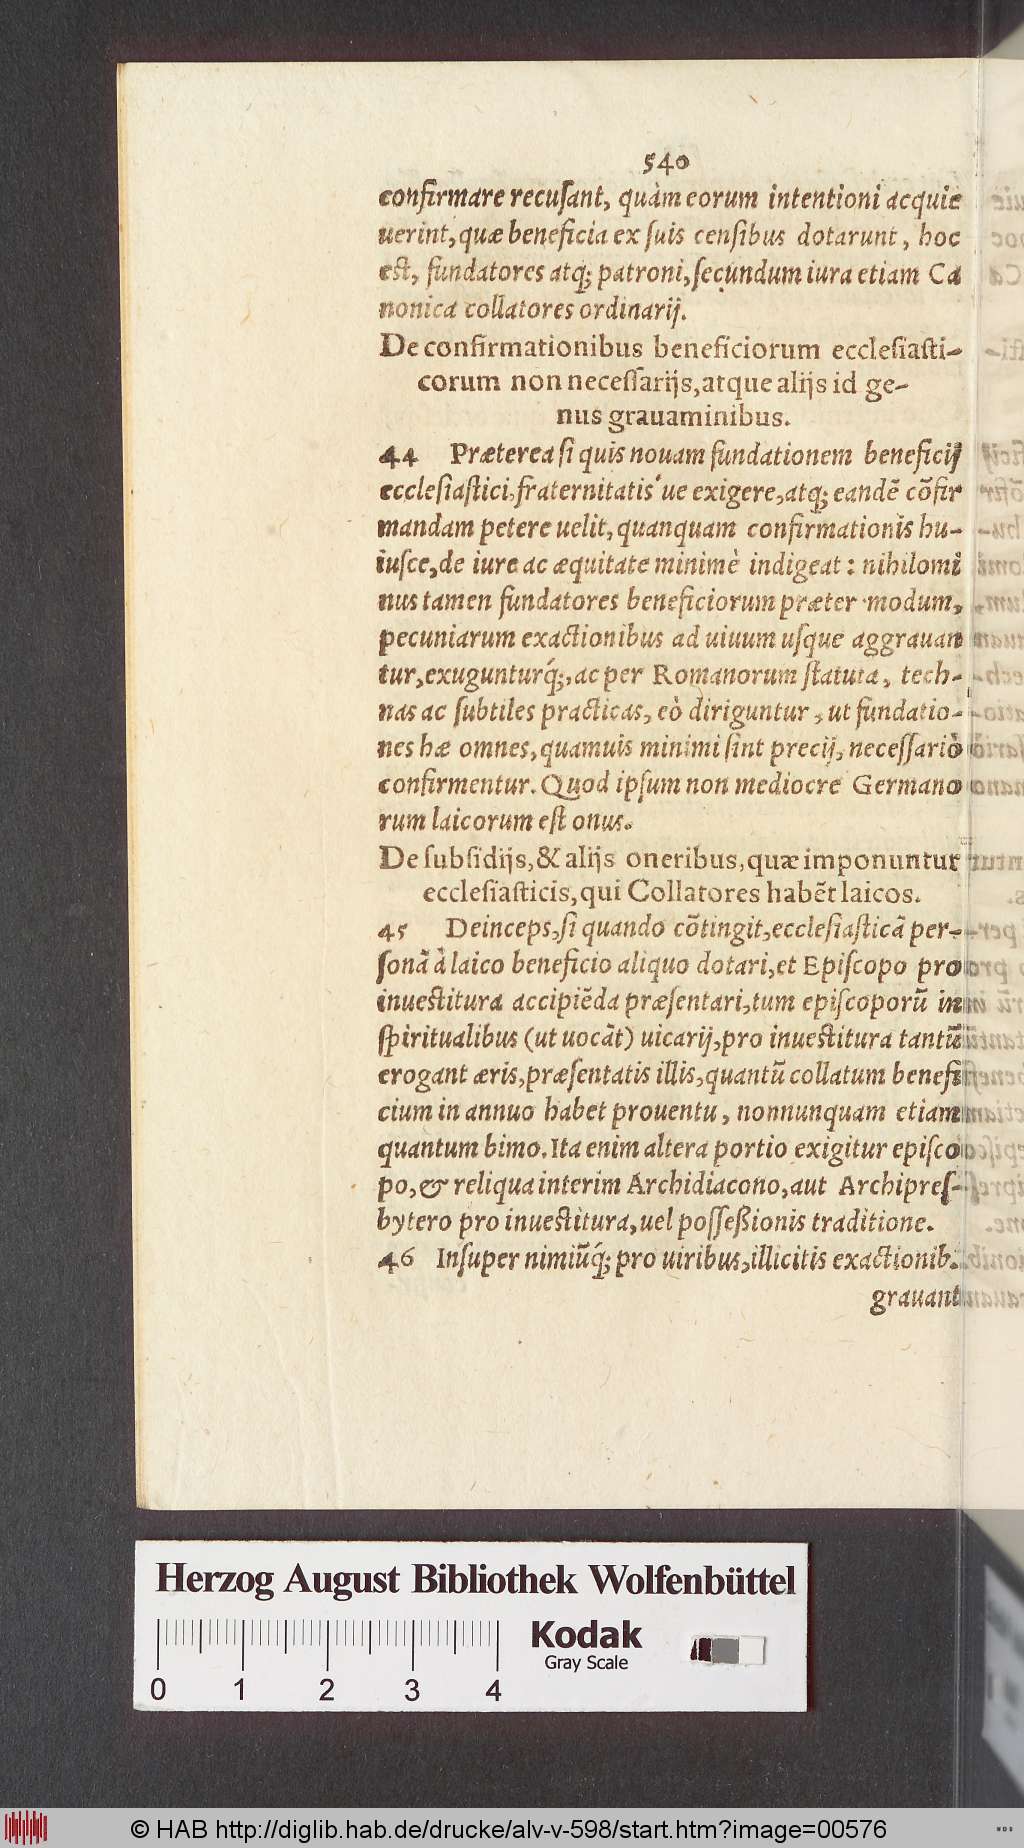 540
confirmare recuſant, quàm eorum intentioni acquie
uerint, quæ beneficia ex ſuis cenſibus dotarunt, hoc
eſt, fundatores atq́; patroni, ſecundum iura etiam Ca
nonica collatores ordinarij.
De confirmationibus beneficiorum eccleſiaſti-
corum non neceſſarijs, atque alijs id ge-
nus grauaminibus.
44 Præterea ſi quis nouam fundationem beneficij
eccleſiaſtici, fraternitatis'ue exigere, atq; eandē cōfir
mandam petere uelit, quanquam confirmationis hu-
iuſce, de iure ac æquitate minimè indigeat: nihilomi
nus tamen fundatores beneficiorum præter modum,
pecuniarum exactionibus ad uiuum uſque aggrauan
tur, exugunturq́;, ac per Romanorum ſtatuta, tech-
nas ac ſubtiles practicas, eò diriguntur, ut fundatio-
nes hæ omnes, quamuis minimi ſint precij, neceſſariò
confirmentur. Quod ipſum non mediocre Germano
rum laicorum eſt onus.
De ſubſidijs, & alijs oneribus, quæ imponuntur
eccleſiaſticis, qui Collatores habēt laicos.
45 Deinceps, ſi quando cōtingit, eccleſiaſticā per-
ſonā à laico beneficio aliquo dotari, et Epiſcopo pro
inueſtitura accipiēda præſentari, tum epiſcoporū in
ſpiritualibus (ut uocāt) uicarij, pro inueſtitura tantū
erogant æris, præſentatis illis, quantū collatum benefi
cium in annuo habet prouentu, nonnunquam etiam
quantum bimo. Ita enim altera portio exigitur epiſco
po, & reliqua interim Archidiacono, aut Archipreſ-
bytero pro inueſtitura, uel poſſeßionis traditione.
46 Inſuper nimiūq́; pro uiribus, illicitis exactionib.
grauant
Herzog August Bibliothek Wolfenbüttel
Kodak
Gray Scale
0 1 2 3 4
© HAB http://diglib.hab.de/drucke/alv-v-598/start.htm?image=00576